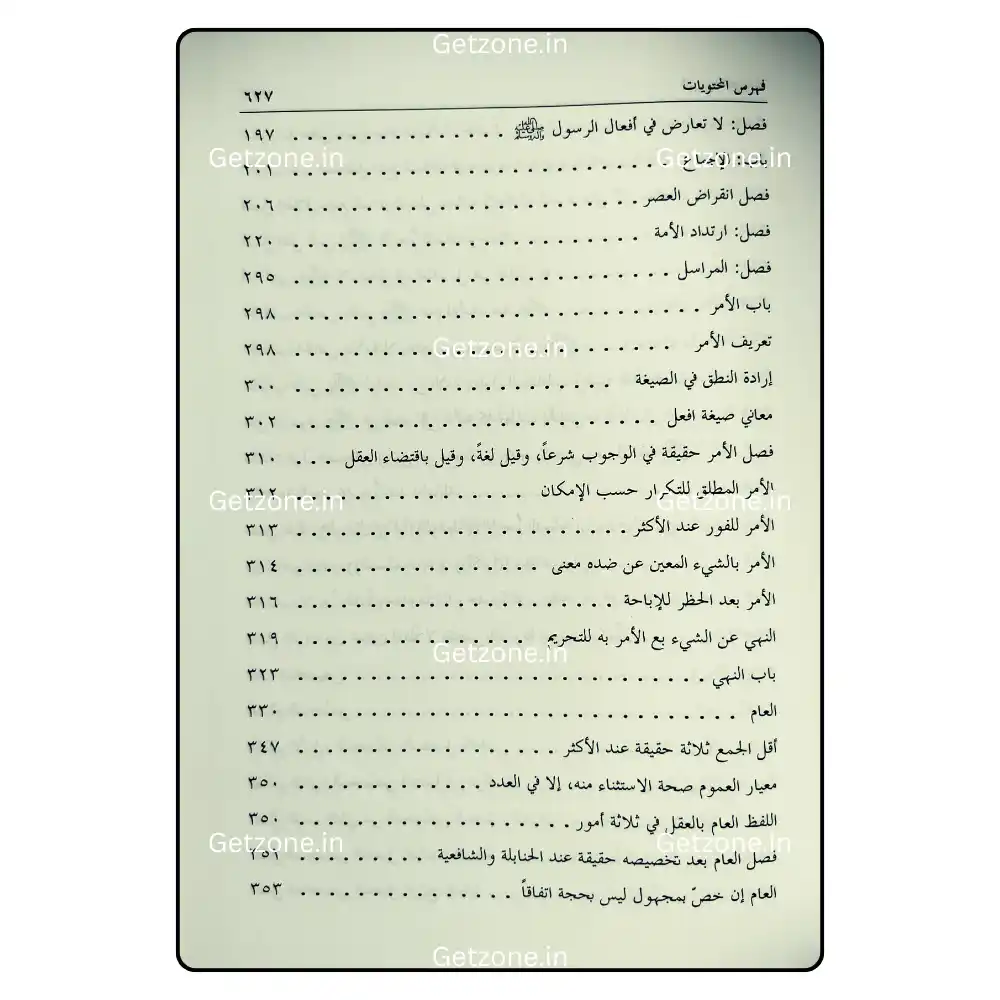 Getzone.in
فهرس المحتويات ٦٢٧
فصل: لا تعارض في أفعال الرسول ﷺ ١٩٧
Getzone.in Getzone.in
باب: الإجماع ٢٠١
فصل انقراض العصر ٢٠٦
فصل: ارتداد الأمة ٢٢٠
فصل: المراسل ٢٩٥
باب الأمر ٢٩٨
تعريف الأمر ٢٩٨
Getzone.in
إرادة النطق في الصيغة ٣٠٠
معاني صيغة افعل ٣٠٢
فصل الأمر حقيقة في الوجوب شرعاً، وقيل لغةً، وقيل باقتضاء العقل ٣١٠
الأمر المطلق للتكرار حسب الإمكان ٣١٢
Getzone.in Getzone.in
الأمر للفور عند الأكثر ٣١٣
الأمر بالشيء المعين عن ضده معنى ٣١٤
الأمر بعد الحظر للإباحة ٣١٦
النهي عن الشيء بع الأمر به للتحريم ٣١٩
Getzone.in
باب النهي ٣٢٣
العام ٣٣٠
أقل الجمع ثلاثة حقيقة عند الأكثر ٣٤٧
معيار العموم صحة الاستثناء منه، إلا في العدد ٣٥٠
اللفظ العام بالعقل في ثلاثة أمور ٣٥٠
Getzone.in Getzone.in
فصل العام بعد تخصيصه حقيقة عند الحنابلة والشافعية ٣٥١
العام إن خصّ بمجهول ليس بحجة اتفاقاً ٣٥٣
Getzone.in